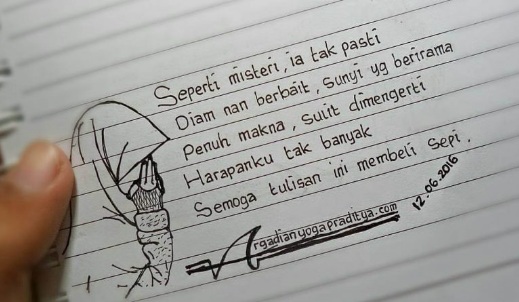 Seperti misteri, ia tak pasti
Diam nan berbait, sunyi yg berirama
Penuh makna, sulit dimengerti
Harapanku tak banyak
Semoga tulisan ini membeli sepi.
Argadianyogapraditya.com
12.06.2016